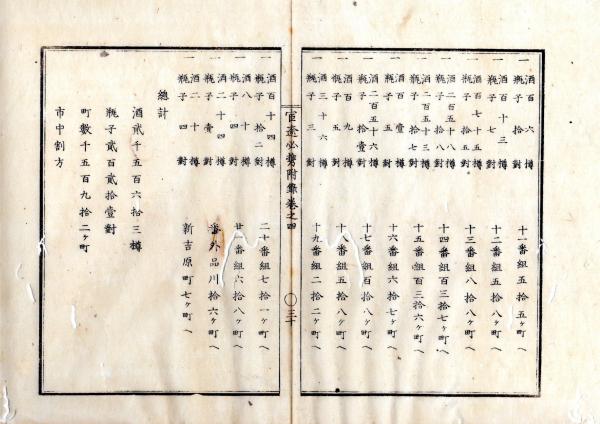 一 酒百六樽
瓶子拾對
十一番組五拾五ヶ町へ
一 酒百十三樽
瓶子七對
十二番組五拾八ヶ町へ
一 酒百七十五樽
十三番組八拾八ヶ町へ
一 酒二百五十八樽
瓶子拾八對
十四番組百三拾七ヶ町へ
一 酒二百五十三樽
瓶子拾七對
十五番組百三拾六ヶ町へ
一 酒百壹樽
瓶子五對
十六番組六拾七ヶ町へ
一 酒二百五十六樽
十七番組百拾八ヶ町へ
一 酒百九樽
瓶子五對
十八番組五拾八ヶ町へ
一 酒三十六樽
瓶子三對
十九番組二拾二ヶ町へ
官途必携附録巻之四 〇三十
一 酒百十四樽
瓶子拾二對
二十番組七拾一ヶ町へ
一 酒八十樽
瓶子四對
番組六拾八ヶ町へ
一 酒二十四樽
瓶子壹對
番外品川拾六ヶ町へ
一 酒二十樽
瓶子四對
新吉原町七ヶ町へ
總計
酒貳千五百六拾三樽
瓶子貳百貳拾壹對
町數千五百九拾二ヶ町
市中割方